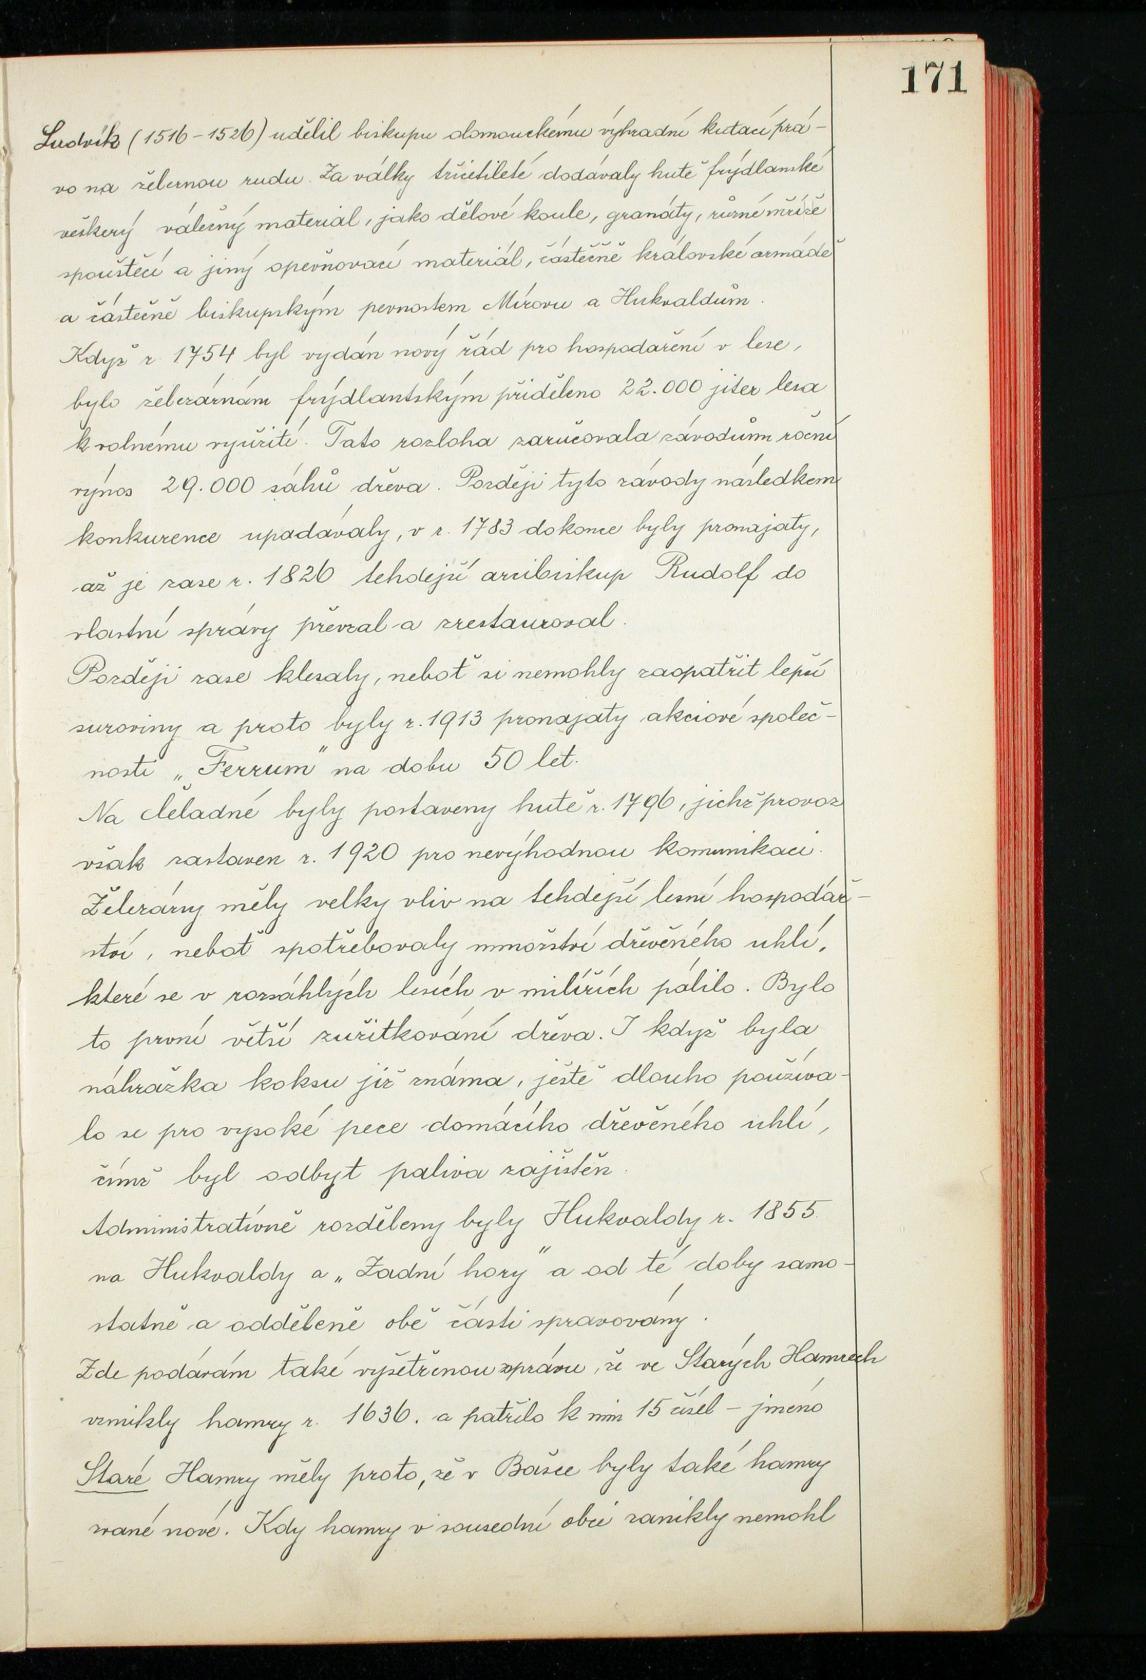 171
Ludvík (1516-1526) udělil biskupu olomouckému výhradní kutací prá-
vo na železnou rudu. Za války třicetileté dodávaly hutě frýdlanské
veškerý válečný materiál, jako dělové koule, granáty, různé mříže
spouštěcí a jiný opevňovací materiál, částečně královské armádě
a částečně biskupským pevnostem Mírovu a Hukvaldům.
Když r. 1754 byl vydán nový řád pro hospodaření v lese,
bylo železárnám frýdlantským přiděleno 22.000 jiter lesa
k volnému využití. Tato rozloha zaručovala závodům roční
výnos 29.000 sáhů dřeva. Později tyto závody následkem
konkurence upadávaly, v r. 1783 dokonce byly pronajaty,
až je zase r. 1826 tehdejší arcibiskup Rudolf do
vlastní správy převzal a zrestauroval.
Později zase klesaly, neboť si nemohly zaopatřit lepší
suroviny a proto byly r. 1913 pronajaty akciové společ-
nosti „Ferrum" na dobu 50 let.
Na Čeladné byly postaveny hutě r. 1796, jichž provoz
však zastaven r. 1920 pro nevýhodnou komunikaci.
Železárny měly velky vliv na tehdejší lesní hospodář-
ství, neboť spotřebovaly množství dřevěného uhlí,
které se v rozsáhlých lesích v milířích pálilo. Bylo
to první větší zužitkování dřeva. I když byla
náhražka koksu již známa, ještě dlouho používa-
lo se pro vysoké pece domácího dřevěného uhlí,
čímž byl odbyt paliva zajištěn.
Administrativně rozděleny byly Hukvaldy r. 1855
na Hukvaldy a „Zadní hory" a od té doby samo-
statně a odděleně obě části spravovány.
Zde podávám také vyšetřenou zprávu, že ve Starých Hamrech
vznikly hamry r. 1636. a patřilo k nim 15 čísel - jméno
Staré Hamry měly proto, že v Bašce byly také hamry
zvané nové. Kdy hamry v sousední obci zanikly nemohl